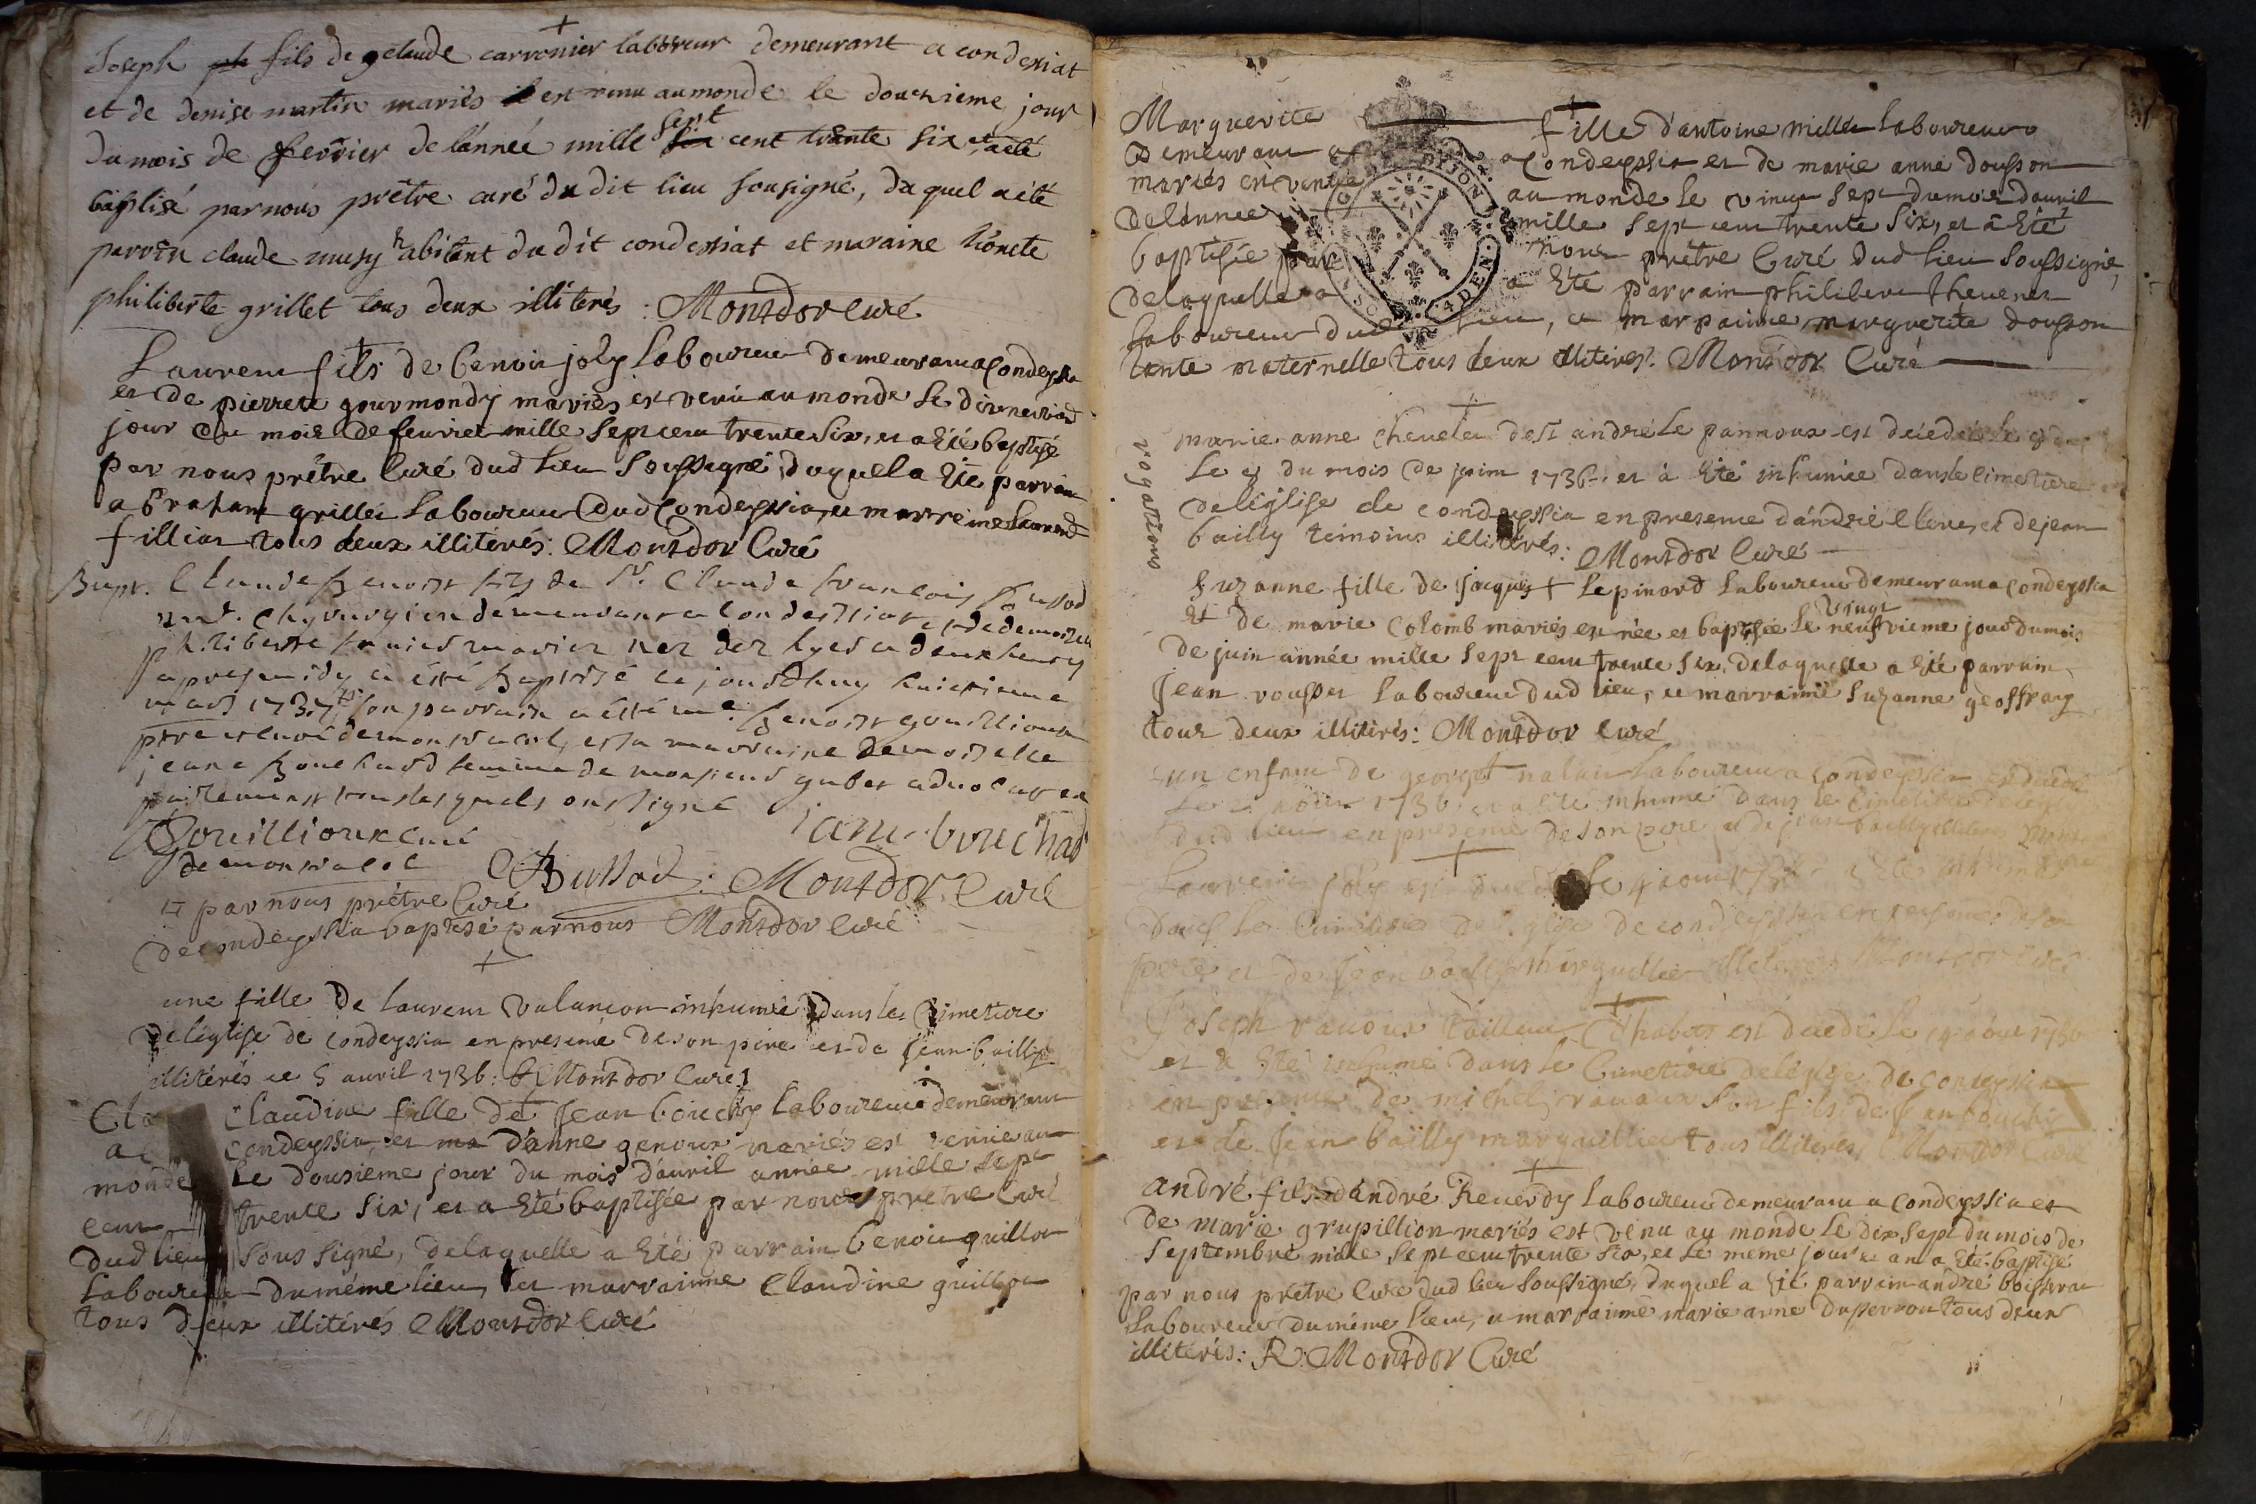 Joseph ph fils de gclaude carronier laboreur demeurant a condessiat
et de denise martin mariés il est venu au monde le douzieme jour
du mois de fevrier de l'année mille six sept cent trante six et a été
baptisé par nous prêtre curé du dit lieu sousigné, du quel a été
parrin claude musy habitant du dit condessiat et maraine
philiberte grillet tous deux illiterés : Montdor curé
Laurent fils de benoit joly laboureur demeurant a Condeyssia
et de pierrete gourmondy mariés est venu au monde le
jour du mois de fevrier mille sept cent trente six, et a été baptisé
par nous prêtre Curé dud lieu soussigné, duquel a été parrain
abraham grillet laboureur dud Condeyssia, et marreine
fillion tous deux illitérés : Montdor Curé
Bapt. Claude benoist fils de Sr. Claude françois bussod
mr. chyrurgien demeurant a Condessiat et de demoiselle
philiberte mariez
apres midy a été baptisé ce jourdhuy huictieme
mars 1737 son parrain a été mr. benoist gouillioux
ptre et curé de monsracol, et sa marraine demoiselle
jeane bouchard femme de monsieur advocat en
parlement tous lesquels ont signé
Bouillioux curé
jane bouchard
de monsracol
Bussod : Montdor Curé
par nous prêtre Curé
de condeyssia baptisé par nous Montdor Curé
une fille de laurent valancon inhumée dans le Cimetiere
de l'église de Condeyssia en presence de son pere et de jean bailly
illitérés ce 5 avril 1736 : Montdor Curé
Cla Claudine fille de jean bouchy laboureur demeurant
a Condeyssia, et ma d'anne genoux mariés est venue au
monde le dousieme jour du mois d'avril année mille sept
cent trente six, et a été baptisée par nous prêtre Curé
dud lieu sous signé, de laquelle a été parrain benoit guillot
laboureur du même lieu, et marrainne Claudine guillot
tous deux illitérés Montdor Curé
Marguerite fille d'antoine millet laboureur
demeurant a Condeyssia et de marie anne dousson
mariés est venue au monde le vingt sept du mois d'avril
de l'année mille sept cent trente six, et a été
baptisée par nous prêtre Curé dud lieu soussigné,
de laquelle a été parrain philibert thevenet
laboureur dud lieu, et marrainne marguerite dousson
tante maternelle tous deux illitérés. Montdor Curé
DIJON
marie anne de St andré le pannoux est decedée
le du mois de juin 1736 et a été inhumée dans le cimetiere
rogations
de l'église de condeyssia en presence d'andré et de jean
bailly témoins illitérés : Montdor Curé
Suzanne fille de jaques lepinard laboureur demeurant a Condeyssia
Et de marie colomb mariés est née et baptisée le vingt neufvieme jour du mois
de juin année mille sept cent trente six, de laquelle a été parrain
jean rousset laboureur dud lieu, et marrainne Suzanne geoffray
tous deux illitérés : Montdor Curé
un enfant de george nalet laboureur a Condeyssia est decedé
1736 et a été inhumé dans le cimetiere
dud lieu en presence de son pere et de jean bailly
Laurent joly est decedé le 4 aout a été inhumé
dans le Cimetiere de l'église de condeyssia en presence de son
pere et de jean bailly marguillier illiterés Montdor Curé
Joseph ravoux tailleur d'habits est decedé le 1736
et a été inhumé dans le Cimetiere de l'église de Condeyssia
en presence de michel ravoux son fils, de jean bouchy
et de jean bailly marguillier tous illiterés, Montdor Curé
andré fils d'andré Reverdy laboureur demeurant a Condeyssia et
de marie grupillion mariés est venu au monde le dix sept du mois de
septembre mille sept cent trente six, et le même jour et an a été baptisé
par nous prêtre Curé dud lieu soussigné, duquel a été parrain andré
laboureur du même lieu, et marrainne marie anne tous deux
illitérés : R. Montdor Curé